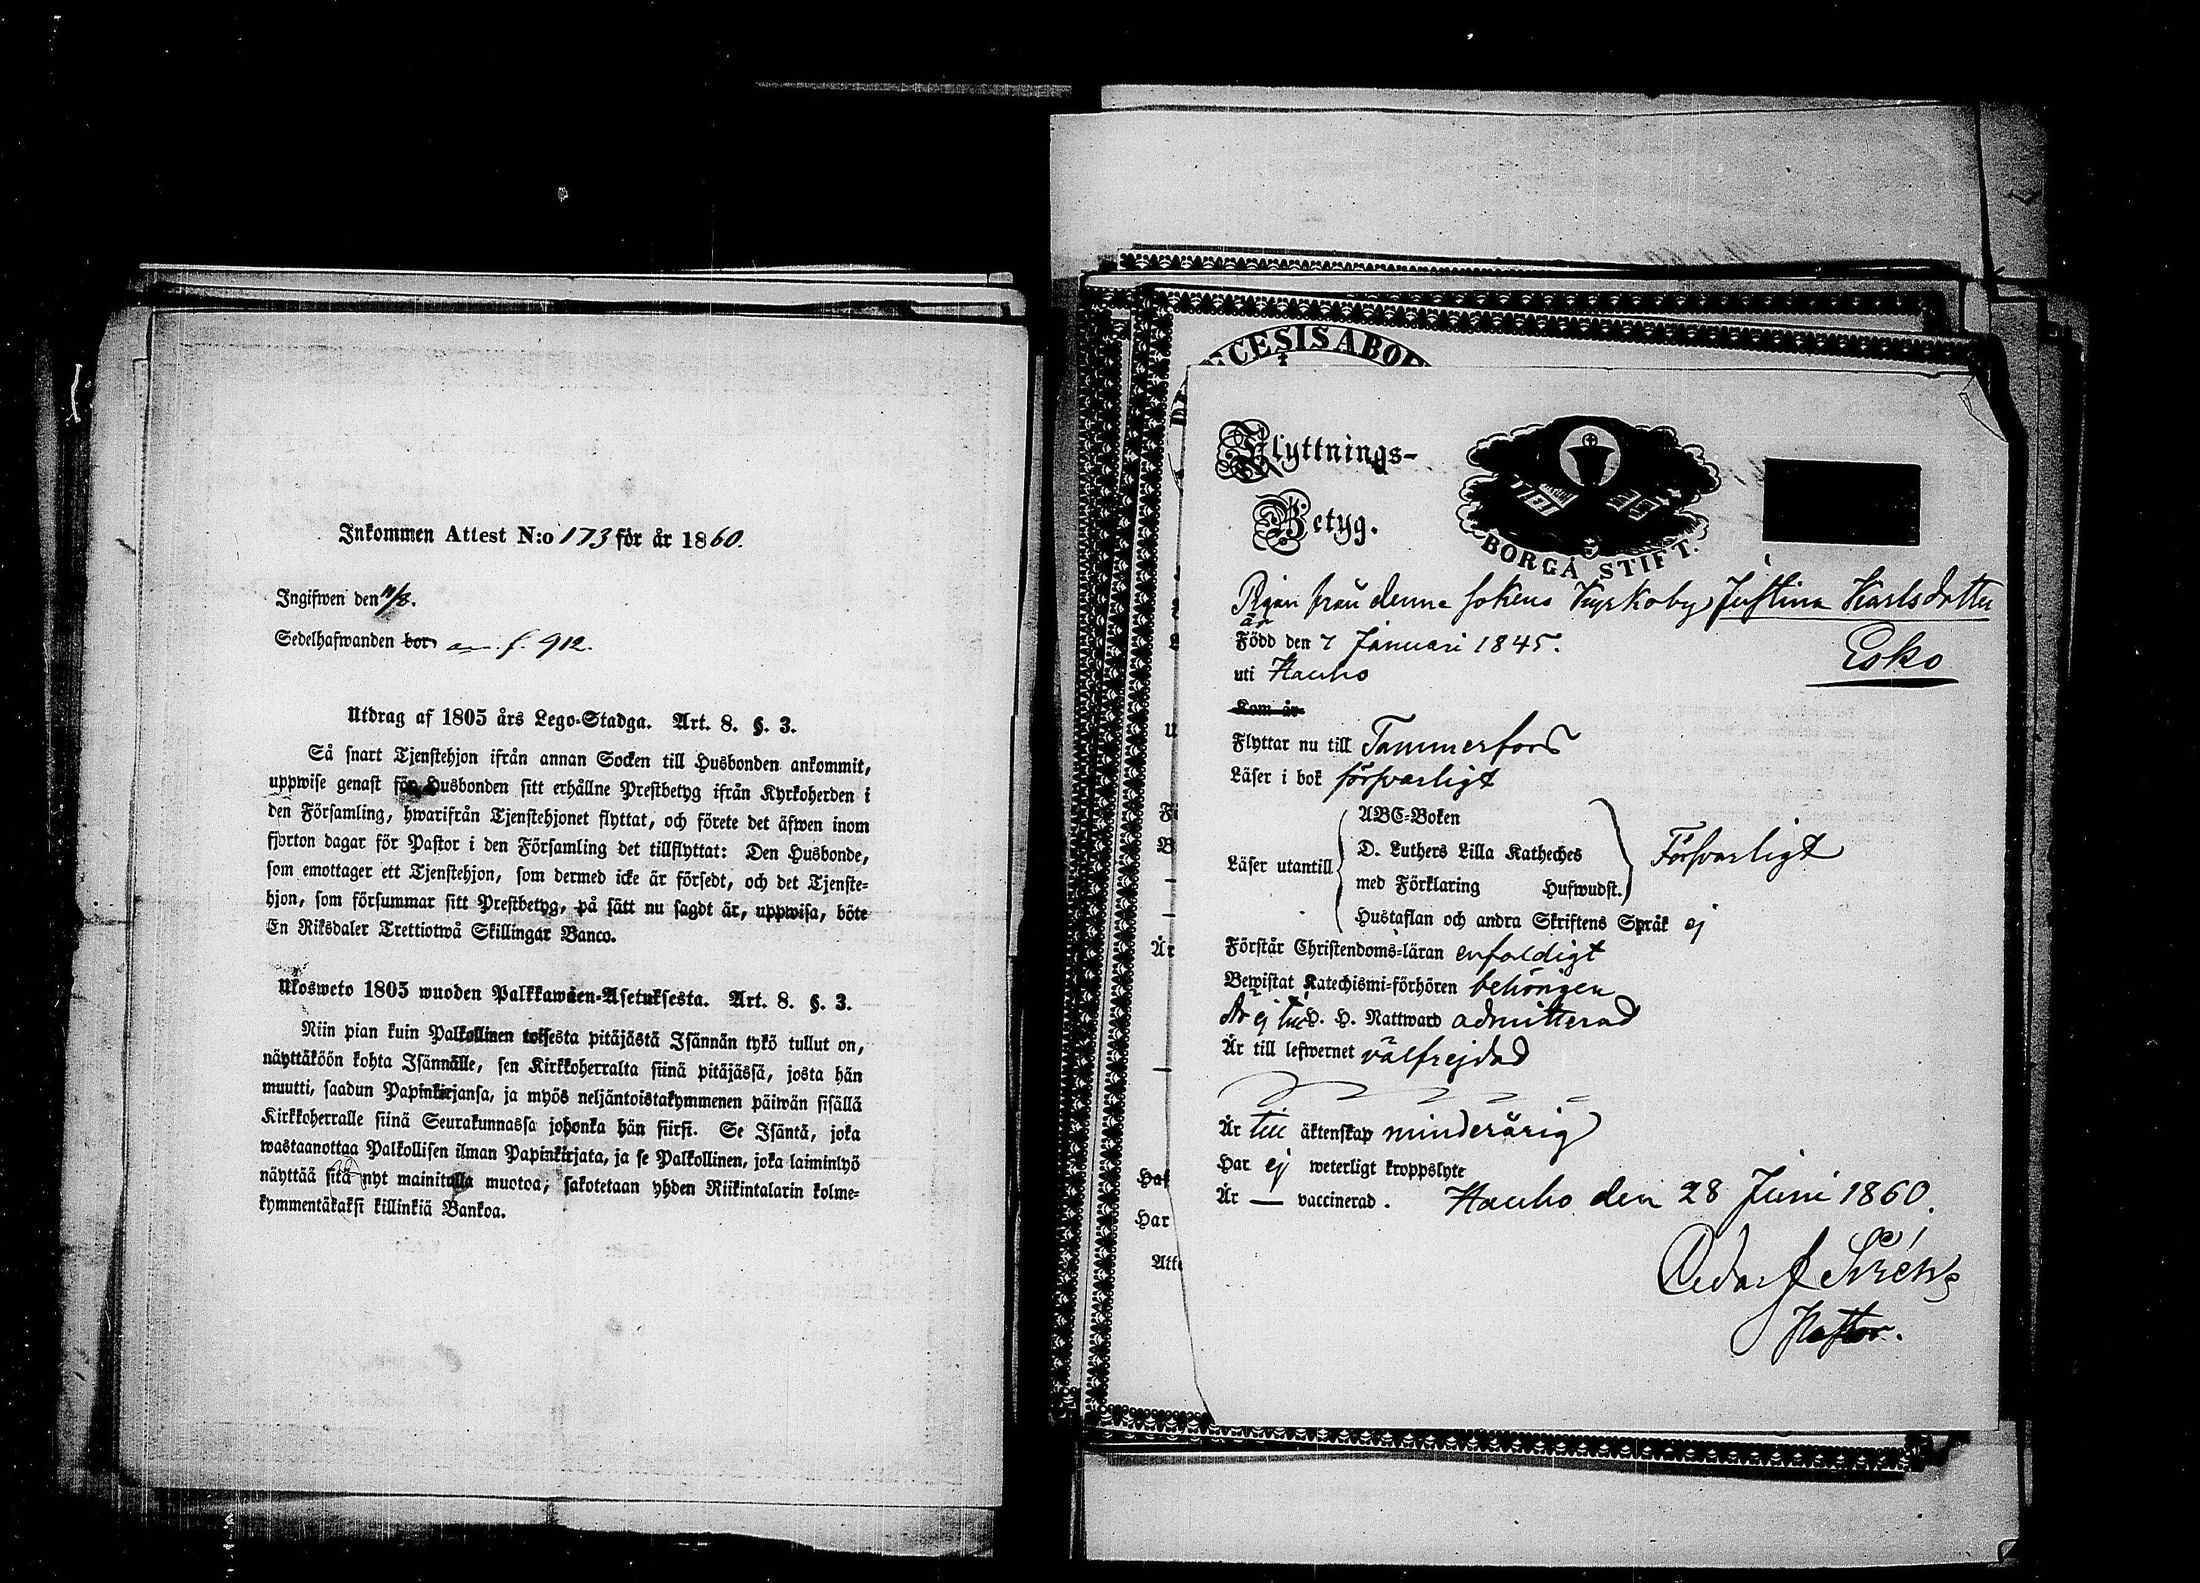 Inkommen Attest N:o 173 för år 1860.
Ingifwen den 11/8.
Sedelhafwanden bor an. f. 912.
Utdrag af 1805 års Lego-Stadga. Art. 8. §. 3.
Så snart Tjenstehjon ifrån annan Socken till Husbonden ankommit,
uppwise genast för Husbonden sitt erhållne Prestbetyg ifrån Kyrkoherden i
den Församling, hwarifrån Tjenstehjonet flyttat, och förete det äfwen inom
fjorton dagar för Pastor i den Församling det tillflyttat: Den Husbonde,
som emottager ett Tjenstehjon, som dermed icke är försedt, och det Tjenste-
hjon, som försummar sitt Prestbetyg, på sätt nu sagdt är, uppwisa, böte
En Riksdaler Trettiotwå Skillingar Banco.
Ulosweto 1805 wuoden Palkkawäen-Asetuksesta. Art. 8. §. 3.
Niin pian kuin Palkollinen toisesta pitäjästä Isännän tykö tullut on,
näyttäköön kohta Isännälle, sen Kirkkoherralta siinä pitäjässä, josta hän
muutti, saadun Papinkirjansa, ja myös neljäntoistakymmenen päiwän sisällä
Kirkkoherralle siinä Seurakunnassa johonka hän siirsi. Se Isäntä, joka
wastaanottaa Palkollisen ilman Papinkirjata, ja se Palkollinen, joka laiminlyö
näyttää sitä nyt mainitulla muotoa, sakotetaan yhden Riikintalarin kolme-
kymmentäkaksi killinkiä Bankoa.
CESIS ABO
Flyttnings-
Betyg.
BORGÅ STIFT.
Pigan från denna sokens Kyrkoby, Justina Karlsdotter
är
Född den 7 Januari 1845.
Esko
uti Hauho
Kom år
Flyttar nu till Tammerfors
Läser i bok försvarligt
Läser utantill
ABC-Boken
D. Luthers Lilla Katheches
med Förklaring Hufwudst.
Försvarligt
Hustaflan och andra Skriftens Språk ej
Förstår Christendoms-läran enfaldigt
Bewistat Katechismi-förhören behörigen
Är ej till H. H. Nattward admitterad
Är till lefwernet välfrejdad
Är till äktenskap minderårig
Har ej weterligt kroppslyte
Är — vaccinerad. Hauho den 28 Juni 1860.
Pastor.
Är
Har